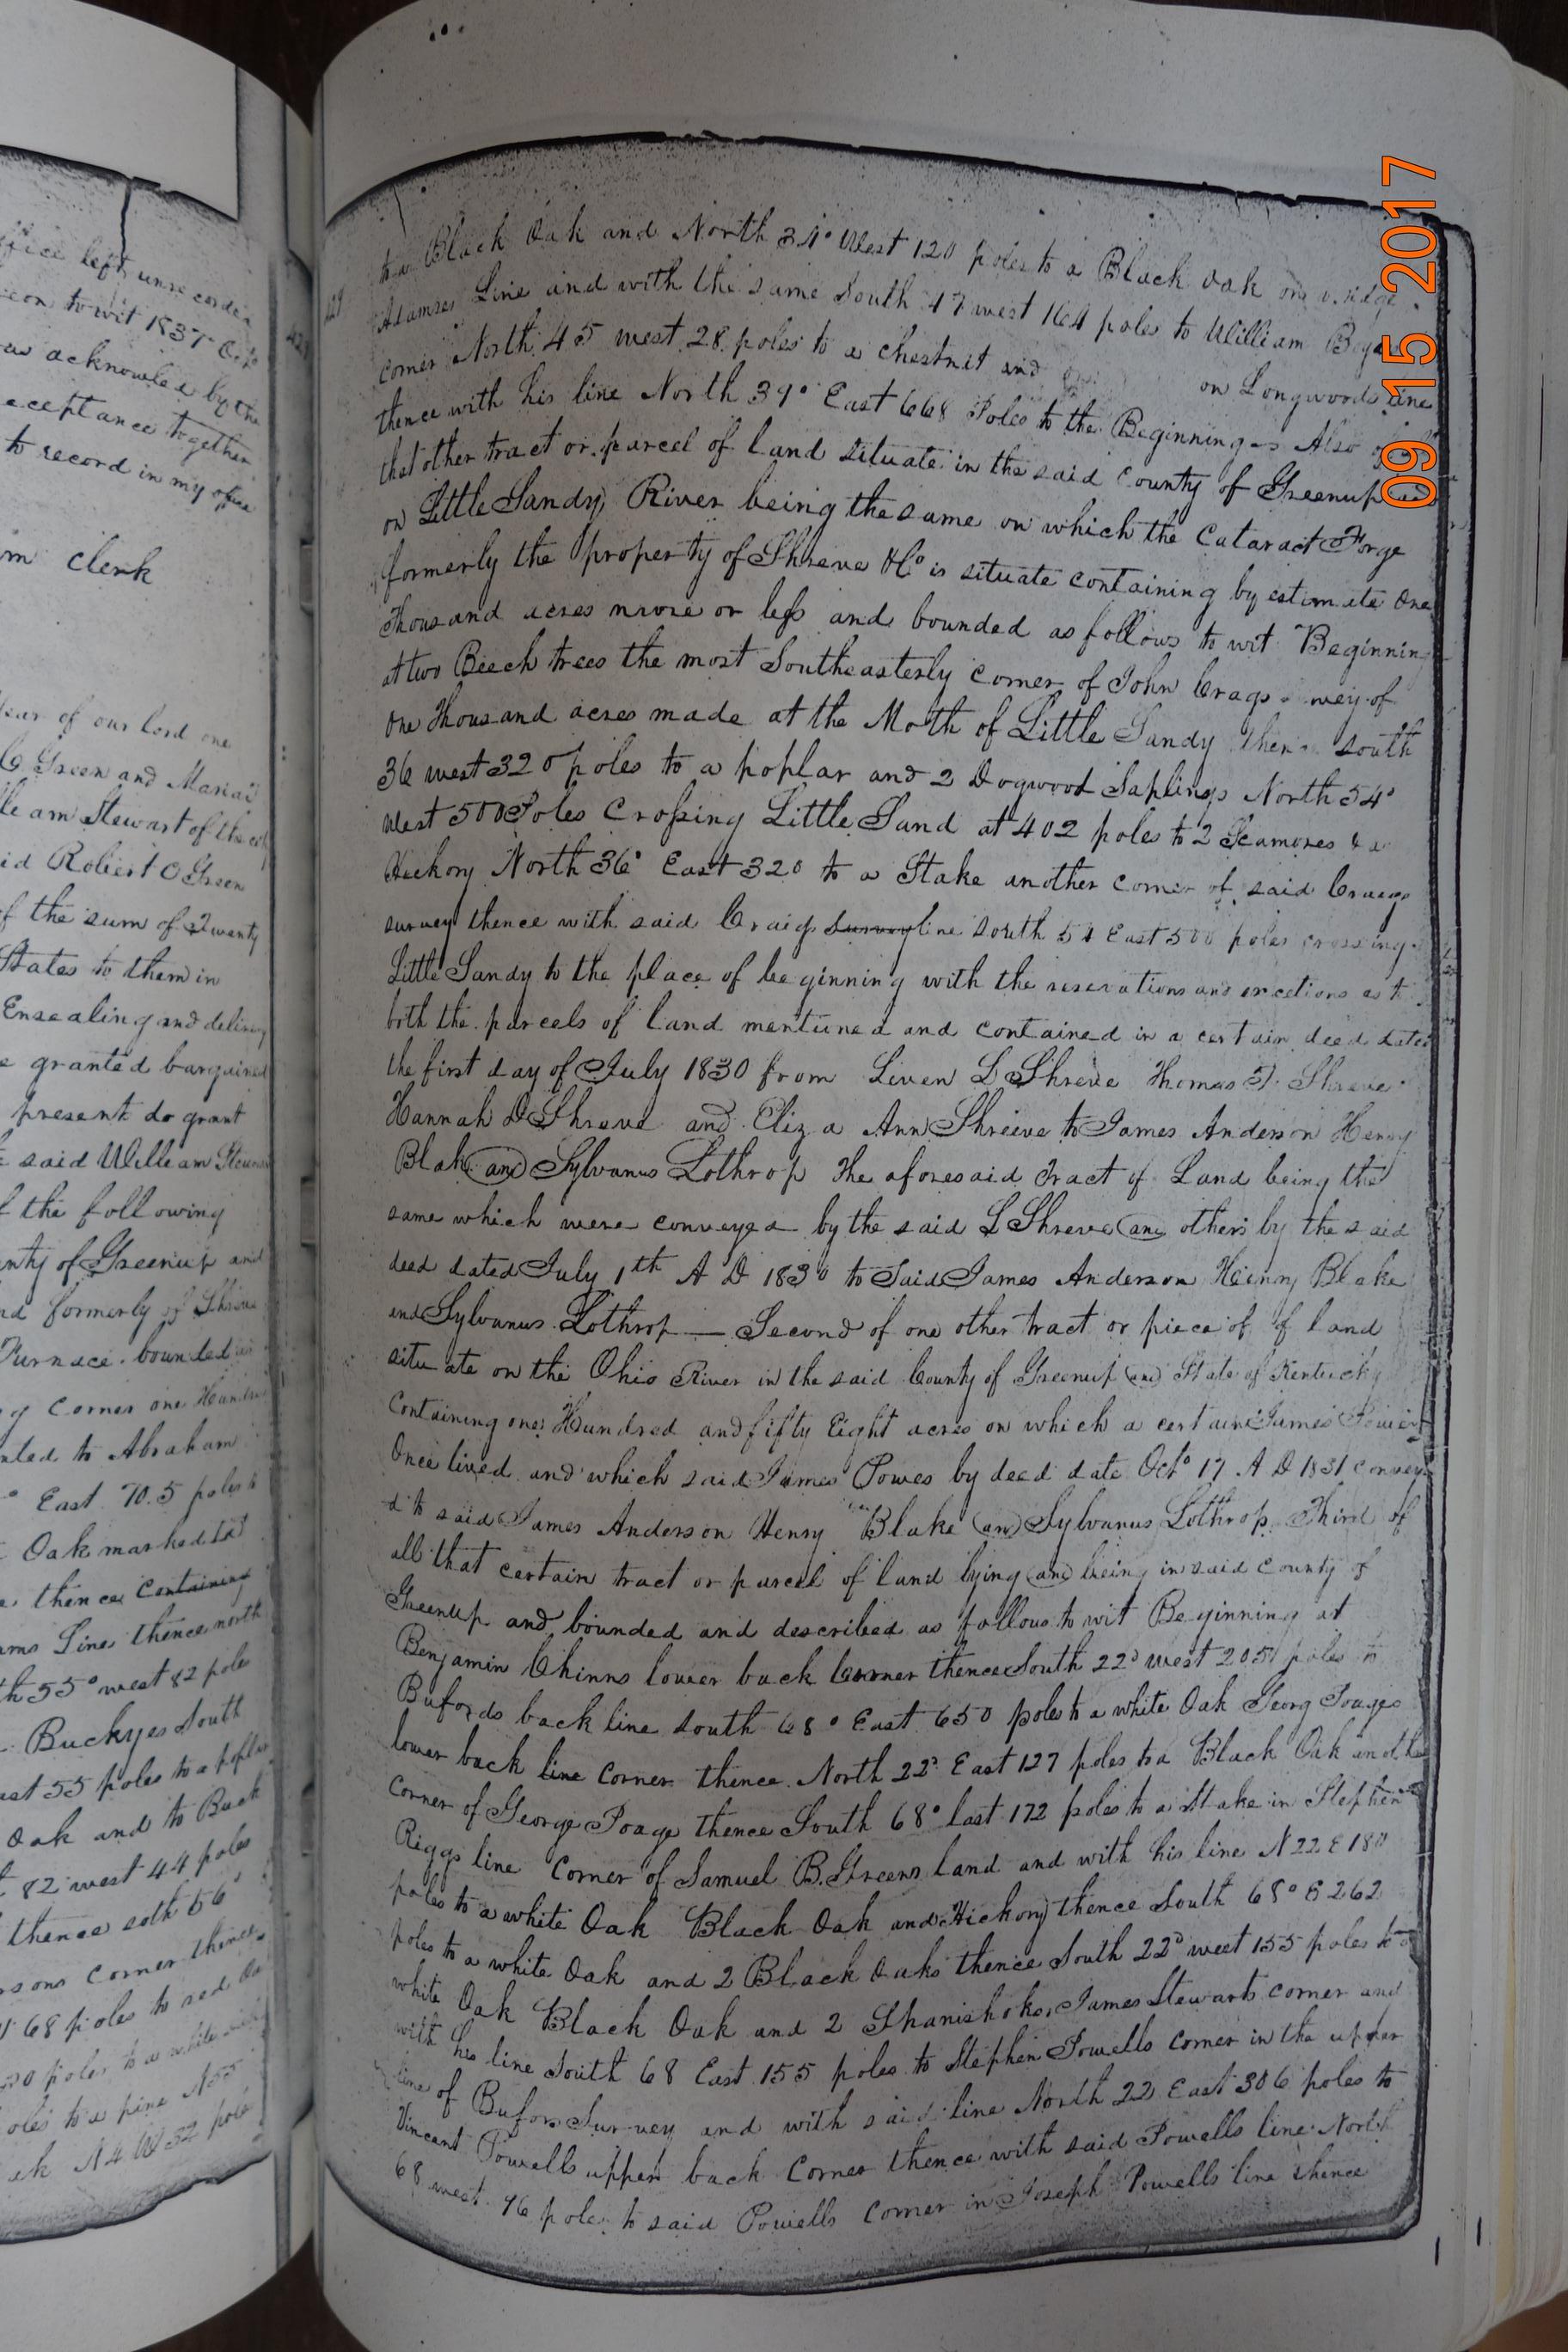 ffice left unrecorded
eon to wit 1837 Oct
as acknowled by the
cceptance together
to record in my office
m clerk
Year of our lord one
C Green and Maria
lleam Stewart of the
id Robert O Green
f the sum of Twenty
States to them in
Ensealing and delivery
e granted bargained
present do grant
said William
f the following
nty of Greenup and
nd formerly of Shreve
Furnace bounded as
g Corner one Hundred
nted to Abraham
° East 70.5 poles to
Oak marked
thence Containing
ams Line thence north
th 55° west 82 pole
Buckyes South
ast 55 poles to a poplar
Oak and to Buck
82 west 44 poles
thence soth 56°
sons Corner thence
68 poles to red Oa
poles to a white
oles to a pine N55
ak N4 W 32 pole
to a Black Oak and North 34° West 120 poles to a Black Oak on a ridge
Adamses Line and with the same South 47 west 164 poles to William
corner North 45 west 28 poles to a chestnut and on Longwoods line
thence with his line North 39° East 668 Poles to the Beginning Also of
that other tract or parcel of land situate in the said County of Greenup and
on Little Sandy River being the same on which the Cataract Forge
formerly the property of Shreve & Co is situate containing by estimate One
Thousand acres more or less and bounded as follows to wit Beginning
at two Beech trees the most Southeasterly corner of John Crags of
One Thousand acres made at the Moth of Little Sandy then south
36 west 320 poles to a poplar and 2 Dogwood Saplings North 54°
West 500 Poles Crossing Little Sand at 402 poles to 2 Scamores & a
Hickory North 36° East 320 to a Stake another corner of said Craigs
survey thence with said Craigs survey line south 54 East 500 poles crossing
Little Sandy to the place of beginning with the reservations and exections as to
both the parcels of land mentuned and contained in a certain deed dated
the first day of July 1830 from Liven L Shreve Thomas T. Shreve
Hannah D Shreve and Eliza Ann Shreeve to James Anderson Henry
Blake and Sylvanus Lothrop The aforesaid Tract of Land being the
same which were conveyed by the said L Shreve and others by the said
deed dated July 1th A D 1830 to Said James Anderson Henry Blake
and Sylvanus Lothrop — Second of one other tract or piece of of land
situate on the Ohio River in the said County of Greenup and State of Kentucky
Containing one Hundred and fifty Eight acres on which a certain James
Once lived and which said James Powes by deed date Octo 17 A D 1831 convey
d to said James Anderson Henry Blake and Sylvanus Lothrop Third of
all that certain tract or parcel of land lying and being in said County of
Greenup and bounded and described as follows to wit Beginning at
Benjamin Chinns lower back Corner thence South 22° west 205 poles to
Bufords back line south 68° East 650 poles to a white Oak Georg Poages
lower back line Corner thence North 22° East 127 poles to a Black Oak another
Corner of George Poage thence South 68° last 172 poles to a Stake in Stephen
Riggs line Corner of Samuel B. Greens land and with his line N 22 E 180
poles to a white Oak Black Oak and Hickory thence South 68° E 262
poles to a white Oak and 2 Black Oaks thence South 22° west 155 poles to a
white Oak Black Oak and 2 Spanishokes James Stewarts corner and
with his line South 68 East 155 poles to Stephen Powells corner in the upper
line of Bufors Survey and with said line North 22 East 306 poles to
Vincent Powells upper back Corner thence with said Powells line North
68 west 96 poles to said Powells Corner in Joseph Powells line thence
09 15 2017